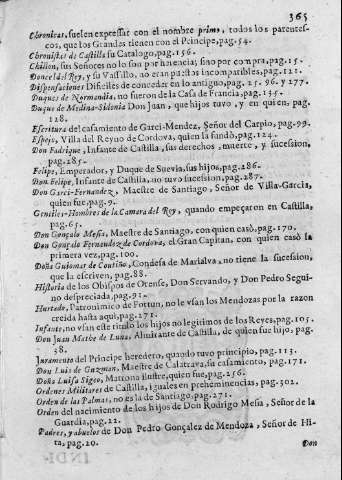 365
Chronicas, suelen expressar con el nombre primo, todos los parentes-
cos, que los Grandes tienen con el Principe, pag. 54.
Chronistas de Castilla su Catalogo, pag. 156.
Chillon, sus Señores no lo son por herencia; sino por compra, pag. 15.
Doncel del Rey, y su Vassallo, no eran puestos incompatibles, pag. 121.
Dispensaciones Dificiles de conceder en lo antiguo, pag. 15. 96. y 277.
Duques de Normandia, no fueron de la Casa de Francia, pag. 135.
Duque de Medina-Sidonia Don Juan, que hijos tuvo, y en quien, pag.
128.
Escritura del casamiento de Garci-Mendez, Señor del Carpio, pag. 99.
Espejo, Villa del Reyno de Cordova, quien la fundò, pag. 124.
Don Fadrique, Infante de Castilla, sus derechos, muerte, y sucession,
pag. 285.
Felipe, Emperador, y Duque de Suevia, sus hijos, pag. 286.
Don Felipe, Infante de Castilla, no tuvo sucession, pag. 287.
Don Garci-Fernandez, Maestre de Santiago, Señor de Villa-Garcia,
quien fue, pag. 9.
Gentiles-Hombres de la Camara del Rey, quando empeçaron en Castilla,
pag. 65.
Don Gonçalo Mesia, Maestre de Santiago, con quien casò, pag. 170.
Don Gonçalo Fernandez de Cordova, el Gran Capitan, con quien casò la
primera vez, pag. 100.
Doña Guiomar de Coutiño, Condesa de Marialva, no tiene la sucession,
que la escriven, pag. 88.
Historia de los Obispos de Orense, Don Servando, y Don Pedro Segui-
no despreciada, pag. 91.
Hurtado, Patronimico de Fortun, no le vsan los Mendozas por la razon
creida hasta aqui, pag. 271.
Infante, no vsan este titulo los hijos no legitimos de los Reyes, pag. 105.
Don Juan Mathe de Luna, Almirante de Castilla, de quien fue hijo, pag.
58.
Juramento del Principe heredero, quando tuvo principio, pag. 113.
Don Luis de Guzman, Maestre de Calatrava, su casamiento, pag. 171.
Doña Luisa Sigeo, Matrona Ilustre, quien fue, pag. 256.
Ordenes Militares de Castilla, iguales en preheminencias, pag. 302.
Orden de las Palmas, no es la de Santiago, pag. 271.
Orden del nacimiento de los hijos de Don Rodrigo Mesia, Señor de la
Guardia, pag. 22.
Padres, y abuelos de Don Pedro Gonçalez de Mendoza, Señor de Hi-
ta, pag. 20.
Don